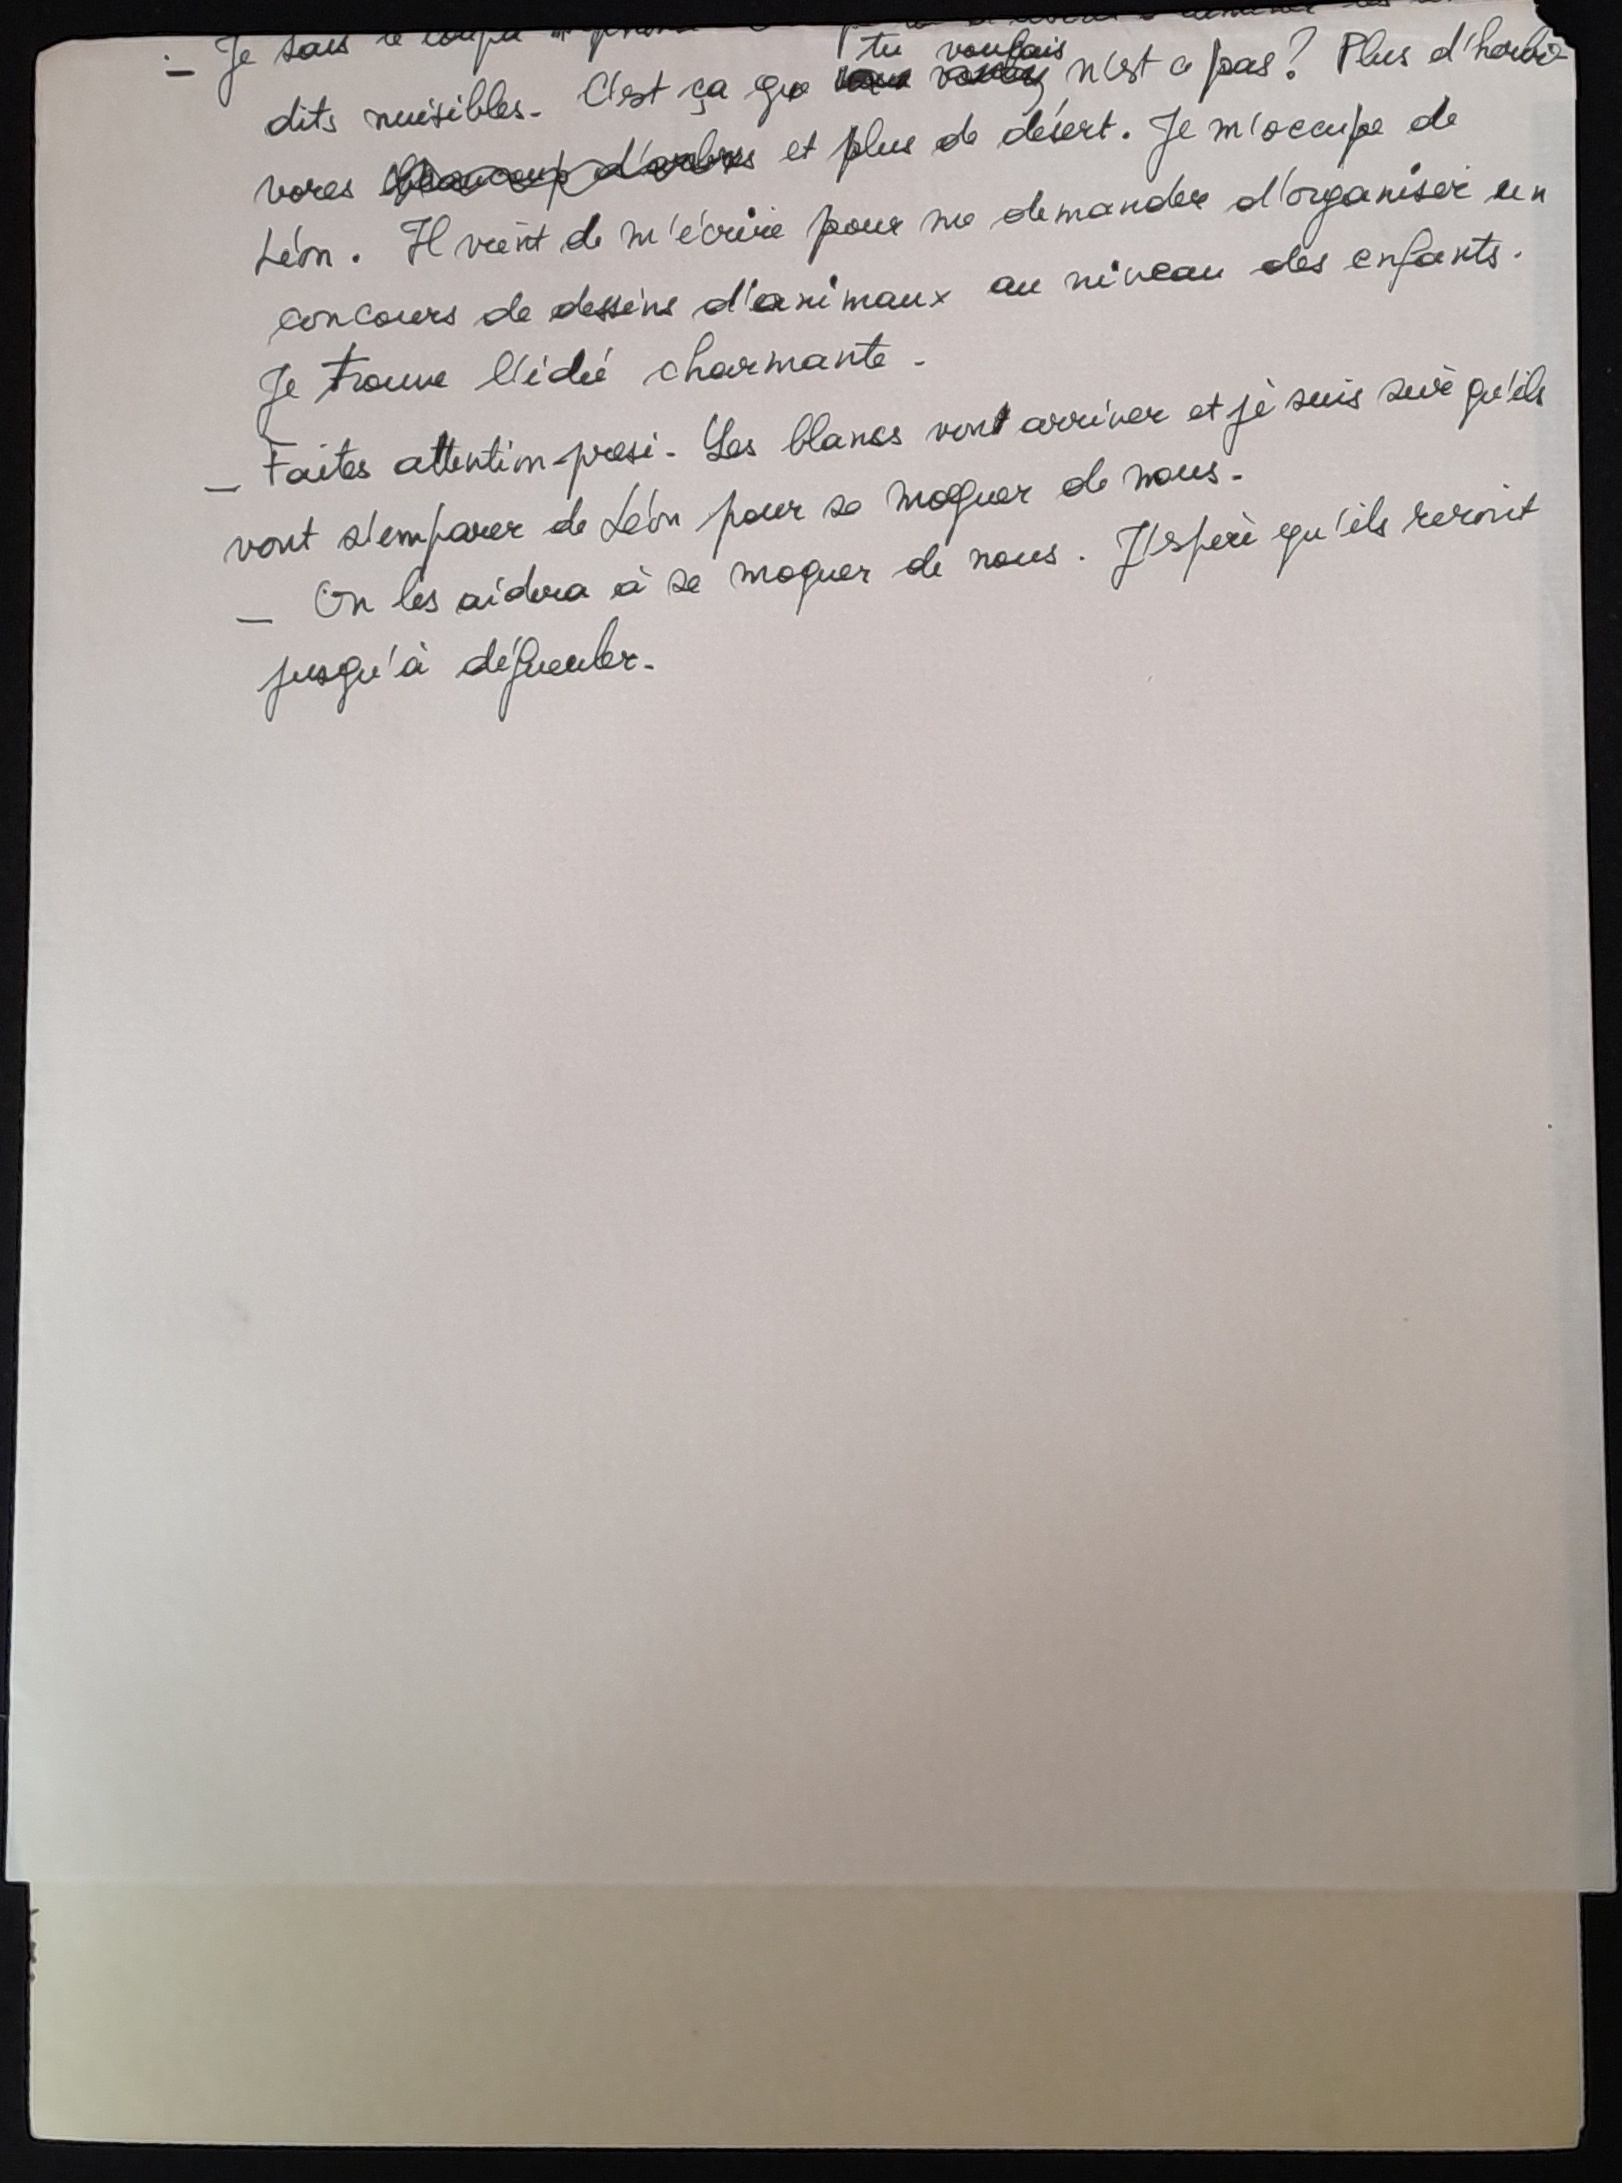 — Je sais
tu voulais
dits nuisibles. C'est ça que n'est ce pas ? Plus d'herbi-
vores beaucoup d'arbres et plus de désert. Je m'occupe de
Léon. Il vient de m'écrire pour me demander d'organiser un
concours de dessins d'animaux au niveau des enfants.
Je trouve l'idée charmante.
— Faites attention presi. Les blancs vont arriver et je suis sûre qu'ils
vont s'emparer de Léon pour se moquer de nous.
— On les aidera à se moquer de nous. J'espère qu'ils riront
jusqu'à dégueuler.